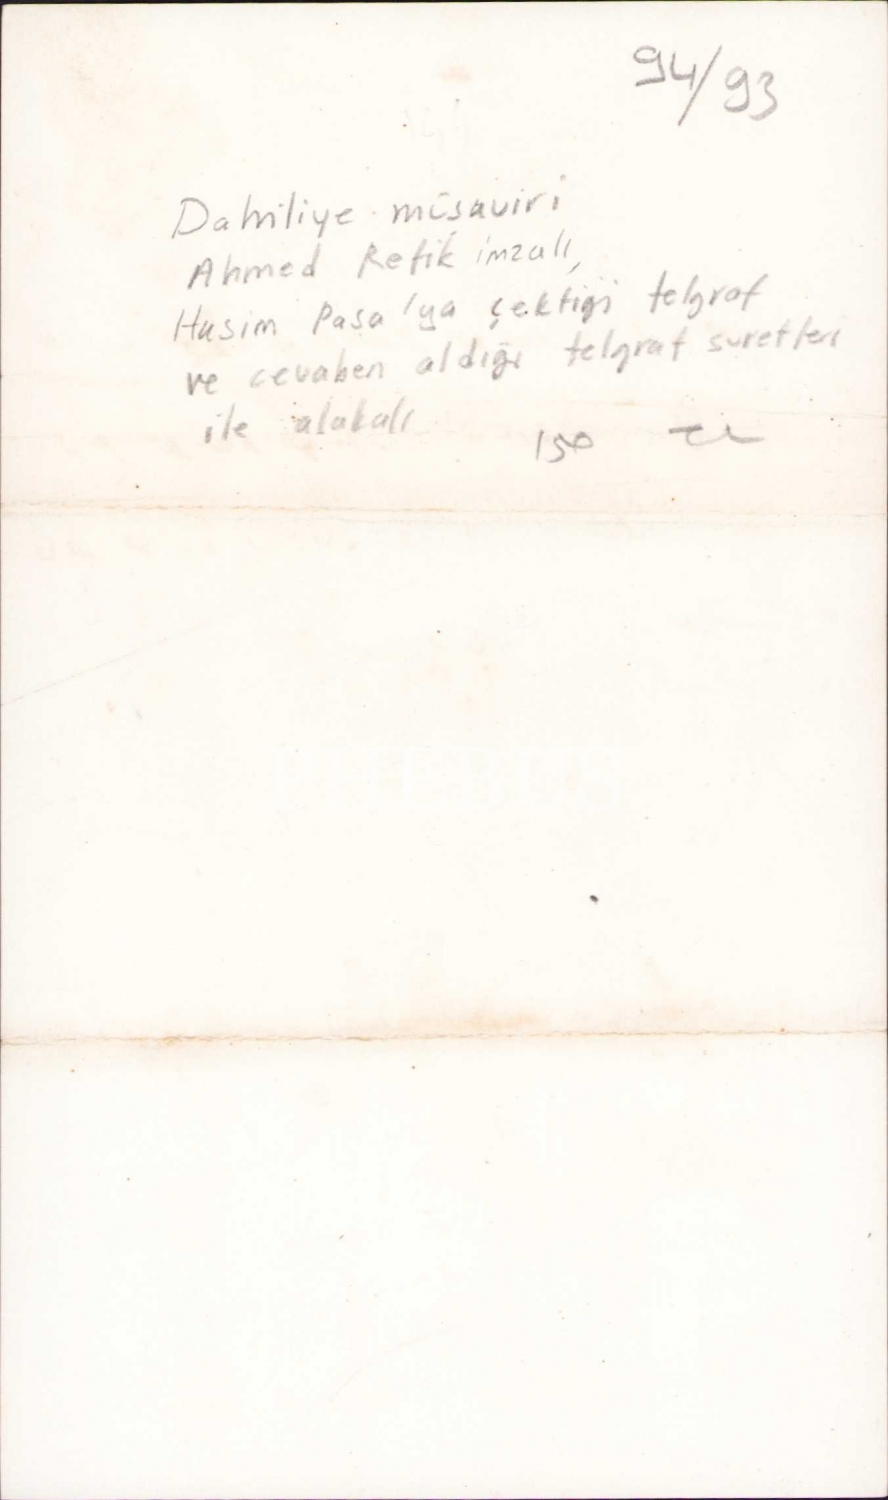 94/93
Dahiliye müşaviri
Ahmed Refik imzalı,
Hasim Paşa'ya çektiği telgraf
ve cevaben aldığı telgraf suretleri
ile alakalı
150 TL